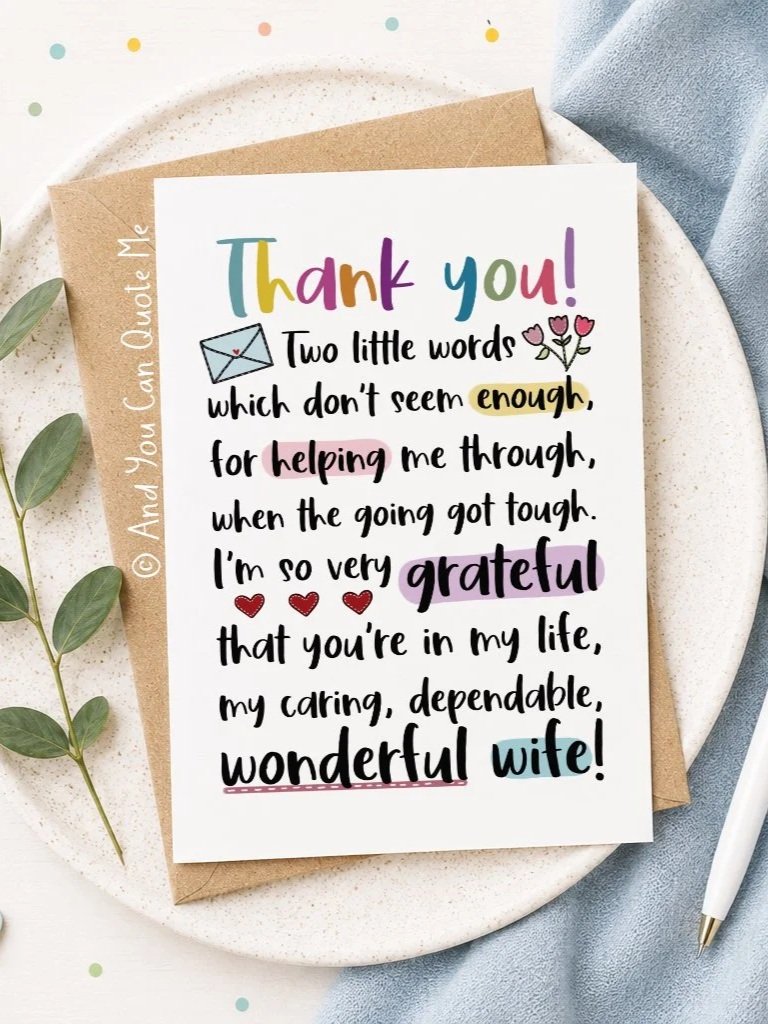 Thank you!
Two little words
which don't seem enough,
for helping me through,
when the going got tough.
I'm so very grateful
that you're in my life,
my caring, dependable,
wonderful wife!
© And You Can Quote Me